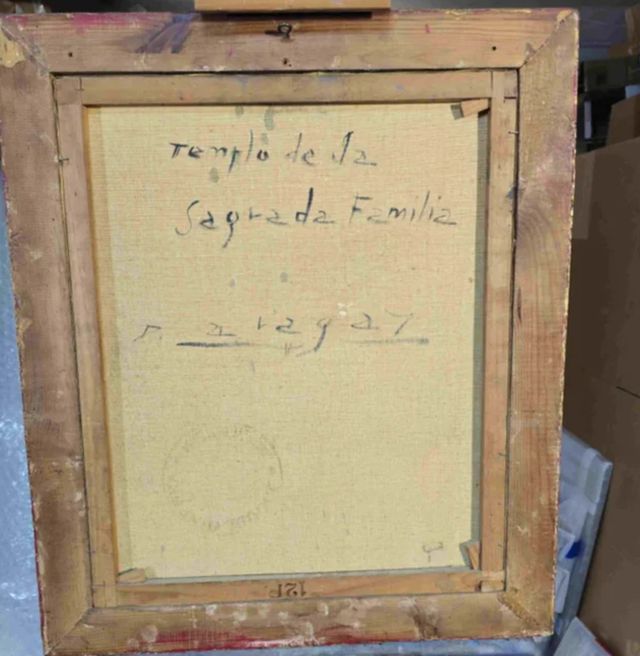 Templo de la
Sagrada Familia
r. aragay
12P